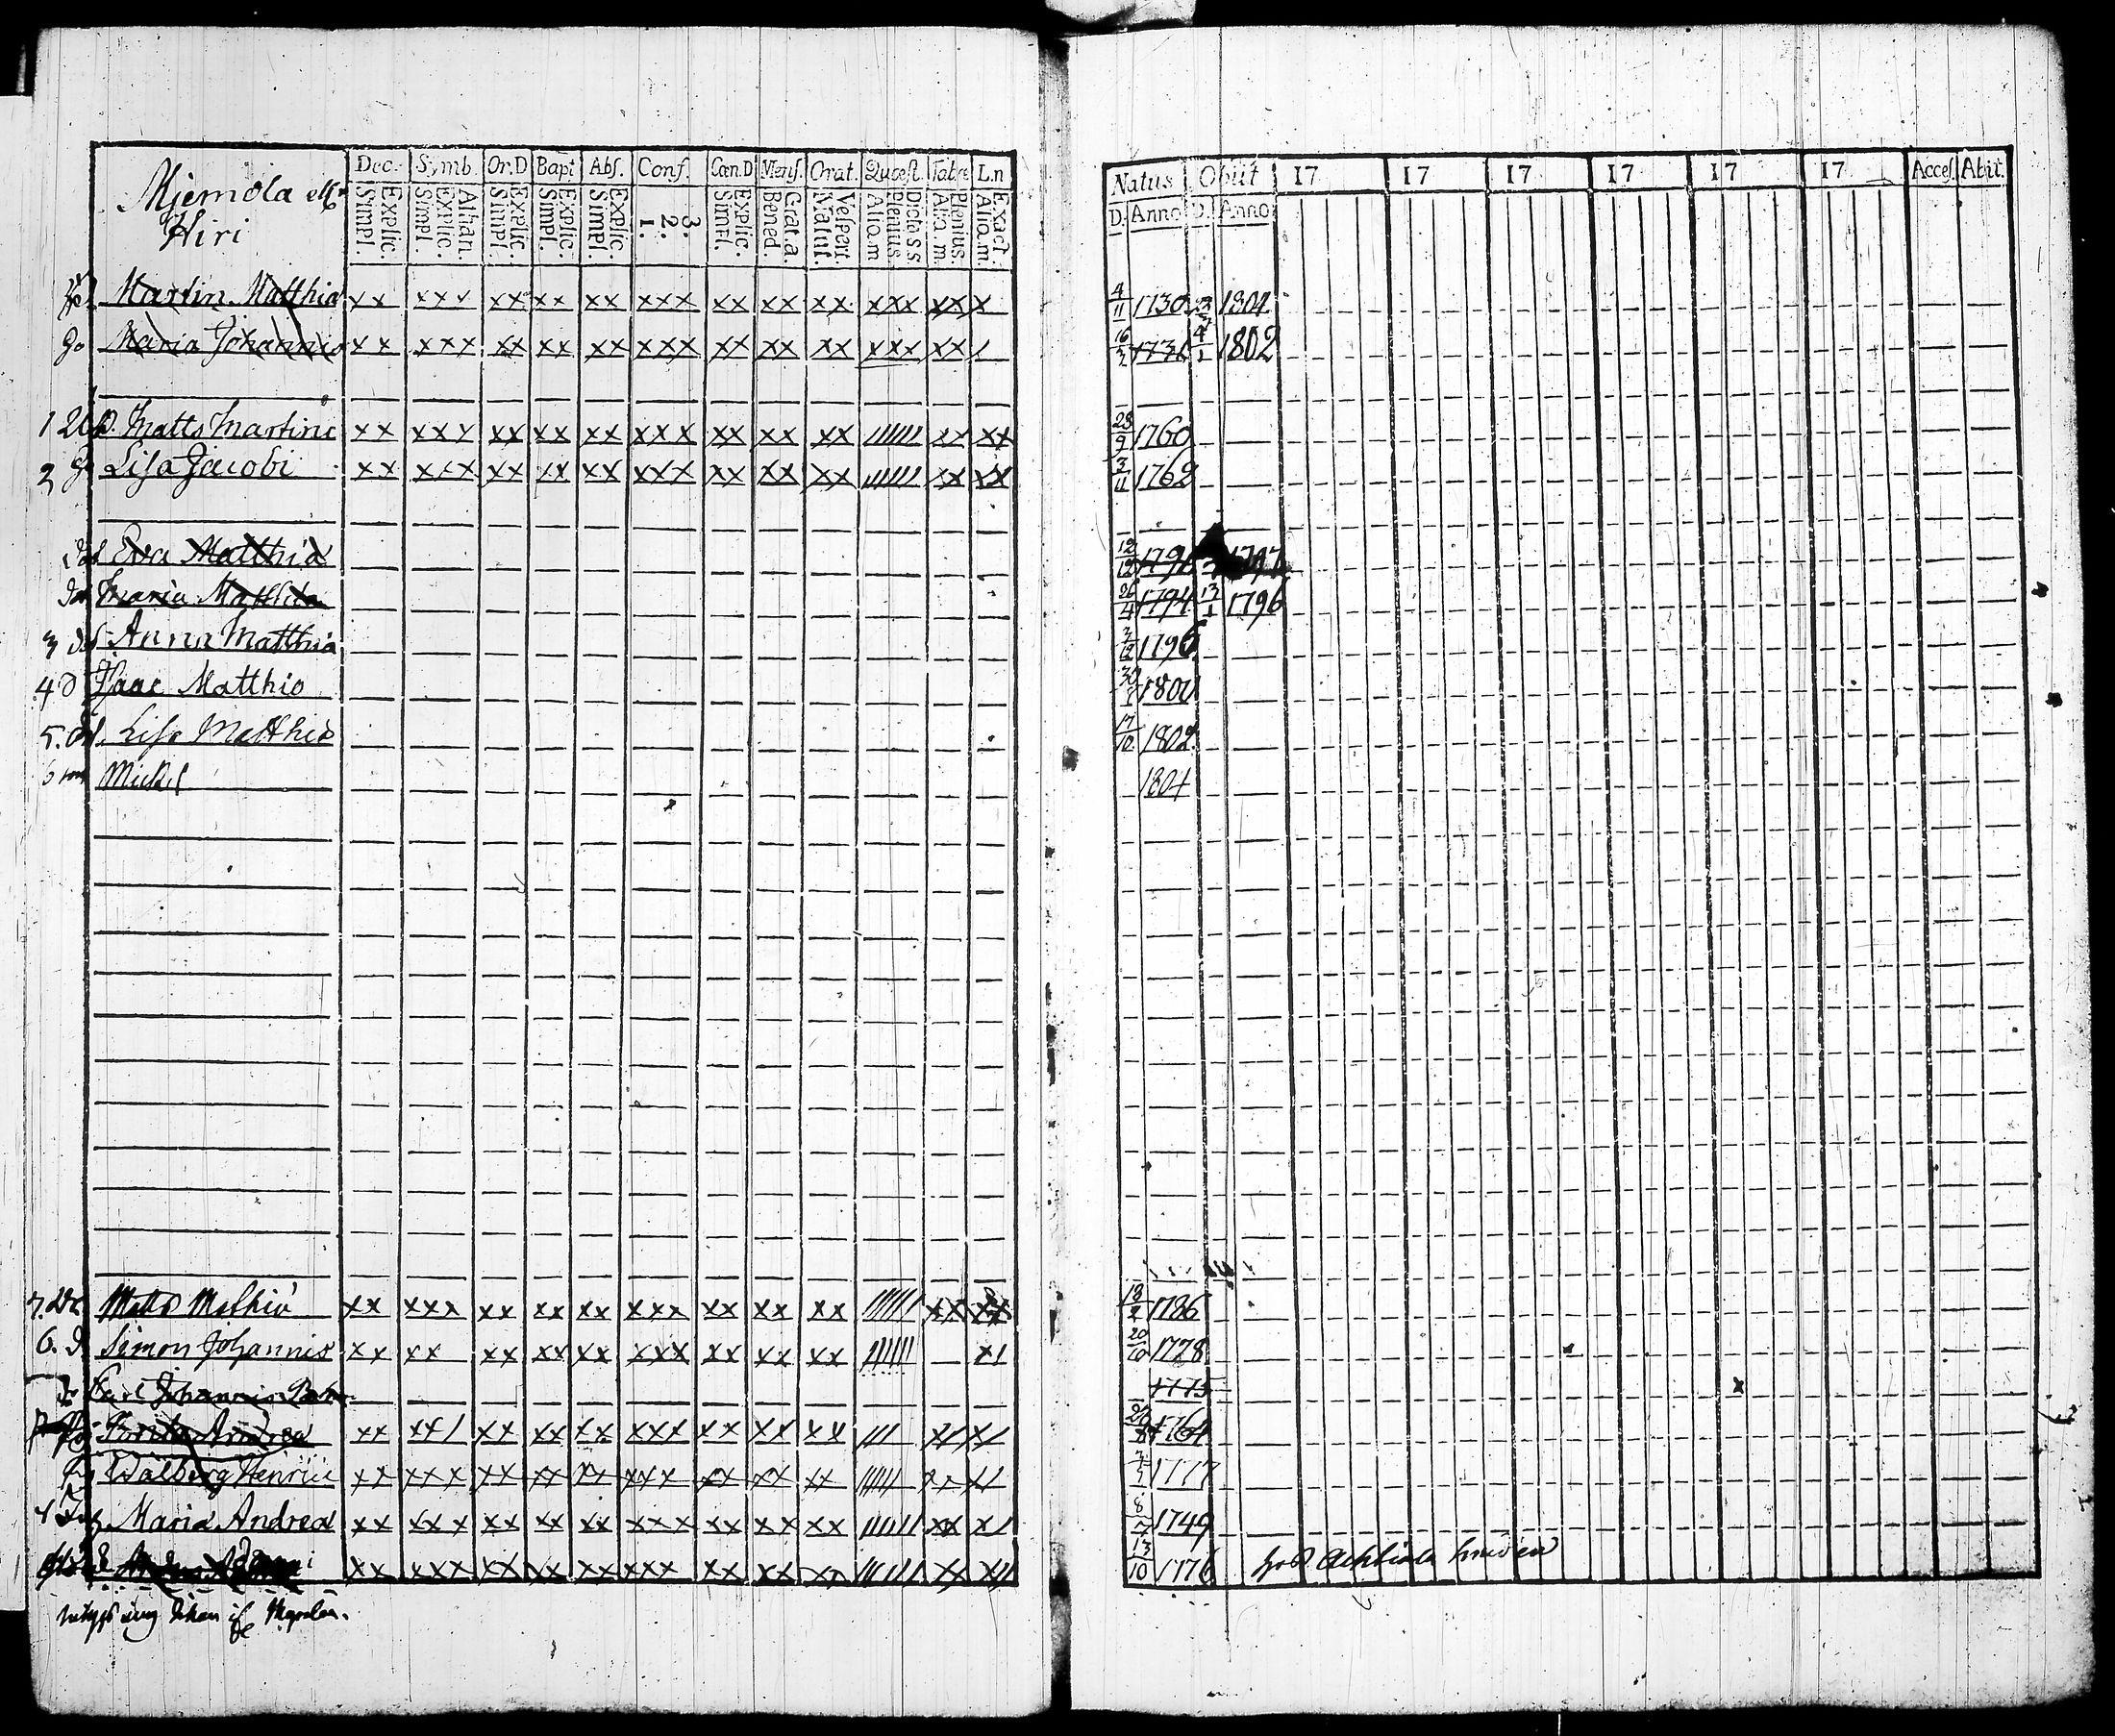 Mjemola
Hiri
Dec. Symb. Or.D Bapt Abs. Conf. Cœn.D Mens. Orat. Quæst. Tab.æ L.n
Explic. Simpl. Athan. Explic. Simpl. Explic. Simpl. Explic. Simpl. Explic. Simpl. 3. 2. 1. Explic. Simpl. Grat.a. Bened. Vespert. Matut. Dicta S.S Plenius Aliq.m Plenius Aliq.m. Exact. Aliq.m.
Natus Obiit 17 17 17 17 17 17 Acces. Abit.
D. Anno D. Anno
Martin Matthiæ xx xxx xx xx xx xxx xx xx xx xxx xxx x 4/11 1730 1804
Maria Johannis xx xxx xx xx xx xxx xx xx xx xxx xx / 1731 4/1 1802
1 Matts Martini xx xxx xx xx xx xxx xx xx xx ////// xx xx 28/9 1760
2 Lisa Jacobi xx xxx xx xx xx xxx xx xx xx ////// xx xx 3/11 1762
Eva Matthiæ 12/12 1791 1797
Maria Matthiæ 26/4 1794 13/1 1796
3 Anna Matthiæ 3/12 1796
4 Isaac Matthiæ 1800
5. Lisa Matthiæ 17/10 1802
6 Mickel 1804
7. Matts Mathiæ xx xxx xx xx xx xxx xx xx xx ////// xx xx 18/2 1786
6. Simon Johannis xx xx xx xx xx xxx xx xx xx ////// x/ 20/10 1728
Carl Johannis 1775
Brita Andreæ xx xx/ xx xx xx xxx xx xx xx /// x/ x/ 1764
Walborg Henrici xx xxx xx xx xx xxx xx xx xx ///// xx x/ 1777
Maria Andreæ xx xxx xx xx xx xxx xx xx xx ////// xx x/ 8/7 1749
xx xxx xx xx xx xxx xx xx xx ////// xx x// 13/10 1776